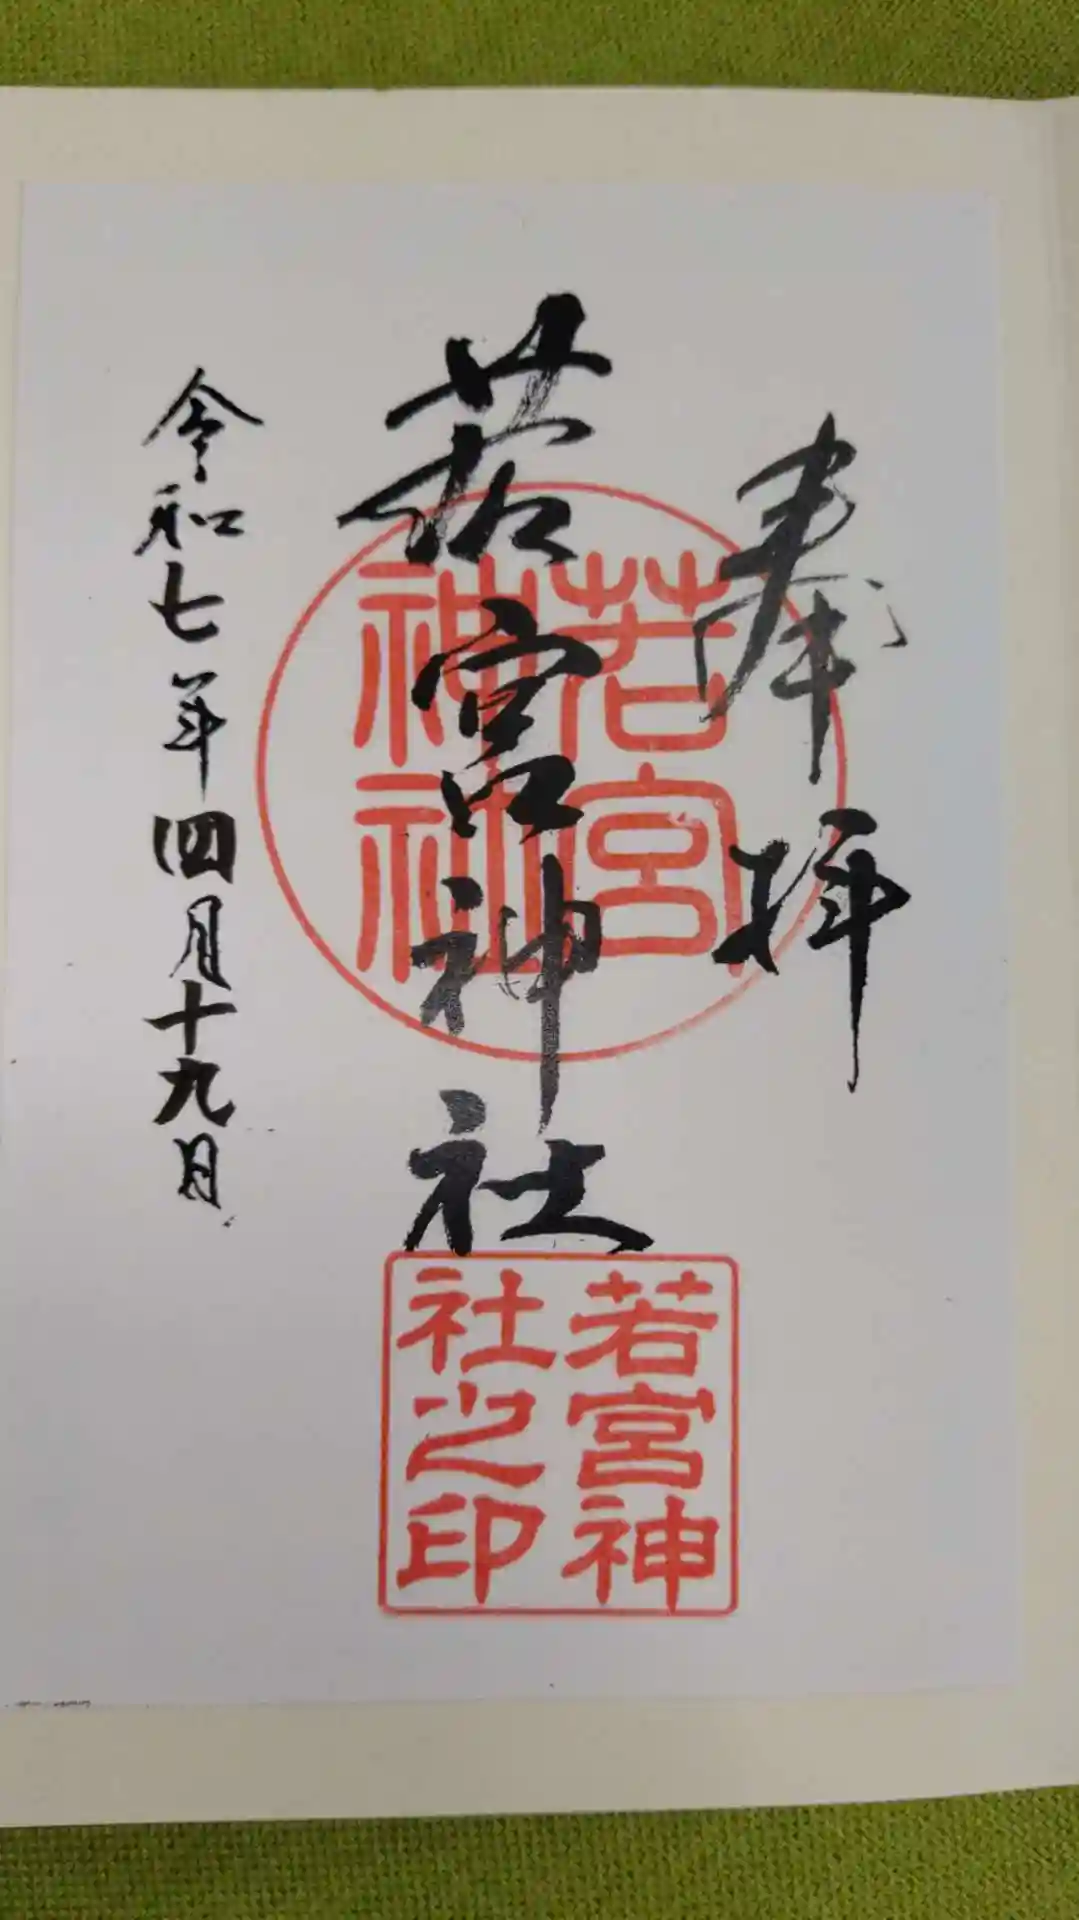 奉拝
若宮神社
令和七年四月十九日
若宮
神社
若宮神
社之印